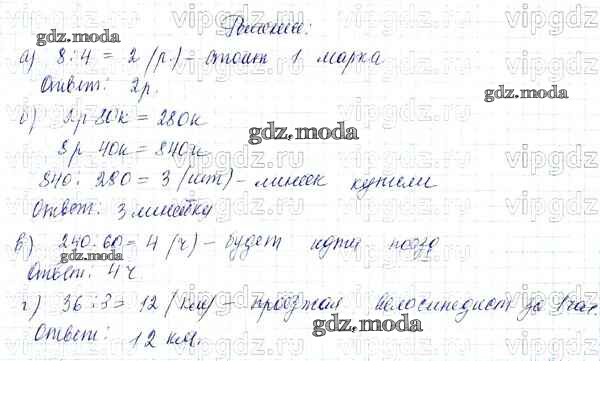 Решение:
а) 8:4 = 2 (р.) – стоит 1 марка
Ответ: 2р.
б) 2р 80к = 280к
8р 40к = 840к
840: 280 = 3 (шт) – линеек купили
Ответ: 3 линейки
в) 240:60 = 4 (ч) – будет идти поезд
Ответ: 4ч
г) 36:3 = 12 (км) – проезжал велосипедист за 1 час.
Ответ: 12 км.
gdz.moda
gdz.moda
gdz.moda
gdz.moda
gdz.moda
vipgdz.ru